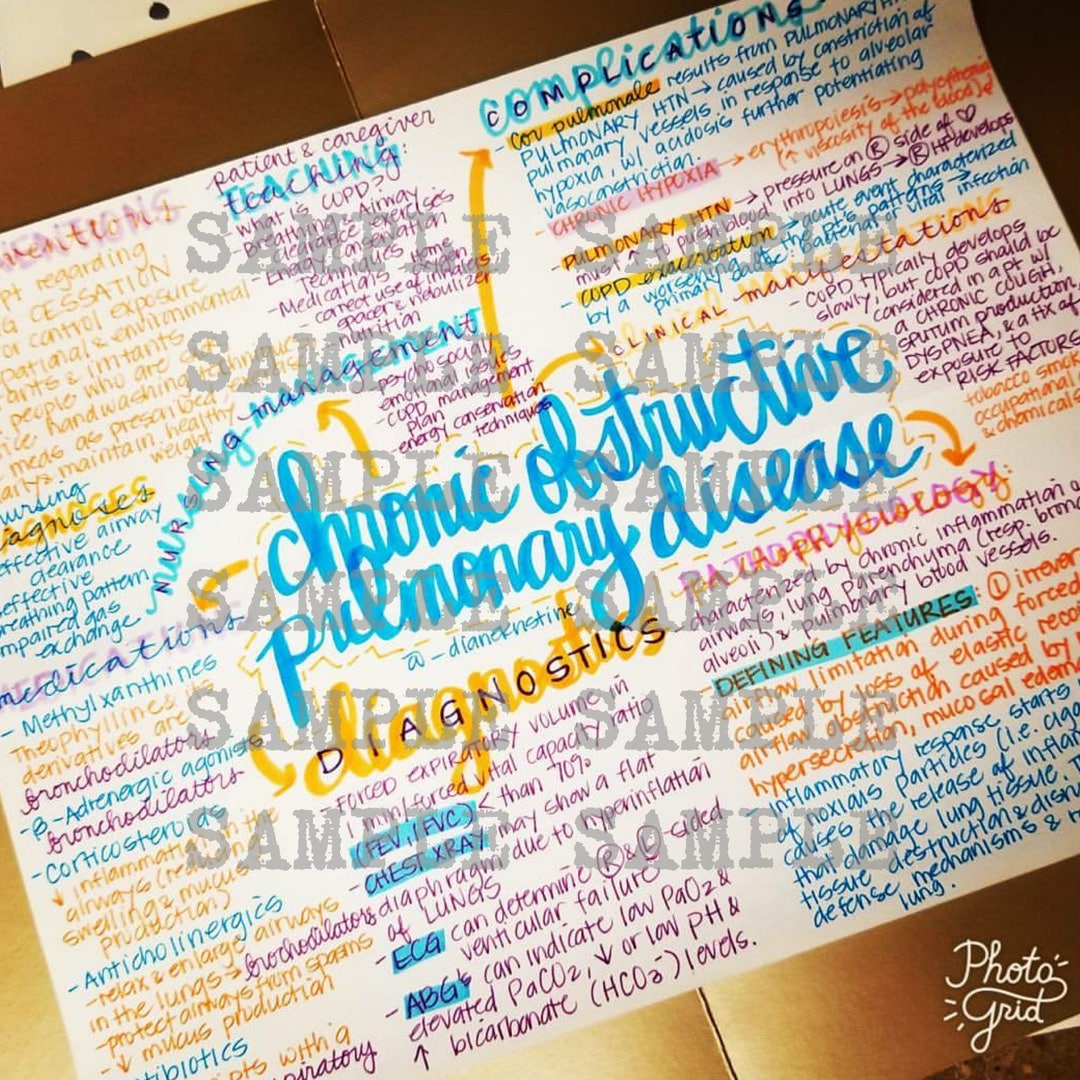 chronic obstructive
pulmonary disease
a - dianekristine
COMPLICATIONS
complications
- cor pulmonale results from PULMONARY HTN
PULMONARY HTN → caused by constriction of
pulmonary vessels in response to alveolar
hypoxia, w/ acidosis further potentiating
vasoconstriction.
CHRONIC HYPOXIA → erythropoiesis → polycythemia
(↑ viscosity of the blood)
- PULMONARY HTN → pressure on Ⓡ side of ♡
must ↑ to push blood into LUNGS → Ⓡ HF develops
- COPD exacerbation → acute event characterized
by a worsening of the pt's patterns →
primary cause: bacterial or viral infection
CLINICAL manifestations
- COPD typically develops
slowly, but COPD should be
considered in a pt w/
a CHRONIC COUGH,
SPUTUM PRODUCTION,
DYSPNEA, & a HX of
exposure to
RISK FACTORS
tobacco smoke
occupational
& chemicals
PATHOPHYSIOLOGY:
characterized by chronic inflammation of
airways, lung parenchyma (resp. bronchioles
alveoli) & pulmonary blood vessels.
- DEFINING FEATURES: ① irreversible
airflow limitation during forced
caused by loss of elastic recoil
airflow obstruction caused by
hypersecretion, mucosal edema
- Inflammatory response starts
of noxious particles (i.e.
causes the release of
that damage lung tissue.
tissue destruction &
defense mechanisms &
lung.
diagnostics
DIAGNOSTICS
- Forced expiratory volume in
1 min/forced vital capacity ratio
(FEV₁/FVC) < than 70%
- CHEST XRAY may show a flat
diaphragm due to hyperinflation
of LUNGS
- ECG can determine Ⓡ & Ⓛ-sided
ventricular failure
- ABG's can indicate low PaO2 &
elevated PaCO2, ↓ or low PH &
↑ bicarbonate (HCO3⁻) levels.
medications
- Methylxanthines
Theophyllines & its
derivatives are
bronchodilators
- β-Adrenergic agonists
bronchodilators
- Corticosteroids
↓ inflammation in the
airways (reducing
swelling & mucus
production)
- Anticholinergics
- relax & enlarge airways
in the lungs → bronchodilators
- protect airways from spasms
- ↓ mucus production
with a
nursing
diagnoses
airway
clearance
breathing pattern
impaired gas
exchange
NURSING management
patient & caregiver
TEACHING
teaching:
what is COPD?
Breathing exercises
Airway clearance
Energy conservation
Techniques
- Medications
- correct use of inhalers
spacer & nebulizer
- nutrition
psycho social/
emotional issues
- COPD management
plan
- energy conservation
techniques
pt regarding
CESSATION
or control exposure
& environmental
& irritants
people who are
handwashing
meds as prescribed
maintain healthy
weight
SAMPLE SAMPLE SAMPLE
SAMPLE SAMPLE SAMPLE
SAMPLE SAMPLE SAMPLE
SAMPLE SAMPLE SAMPLE
SAMPLE SAMPLE SAMPLE
SAMPLE SAMPLE SAMPLE
Photo
Grid